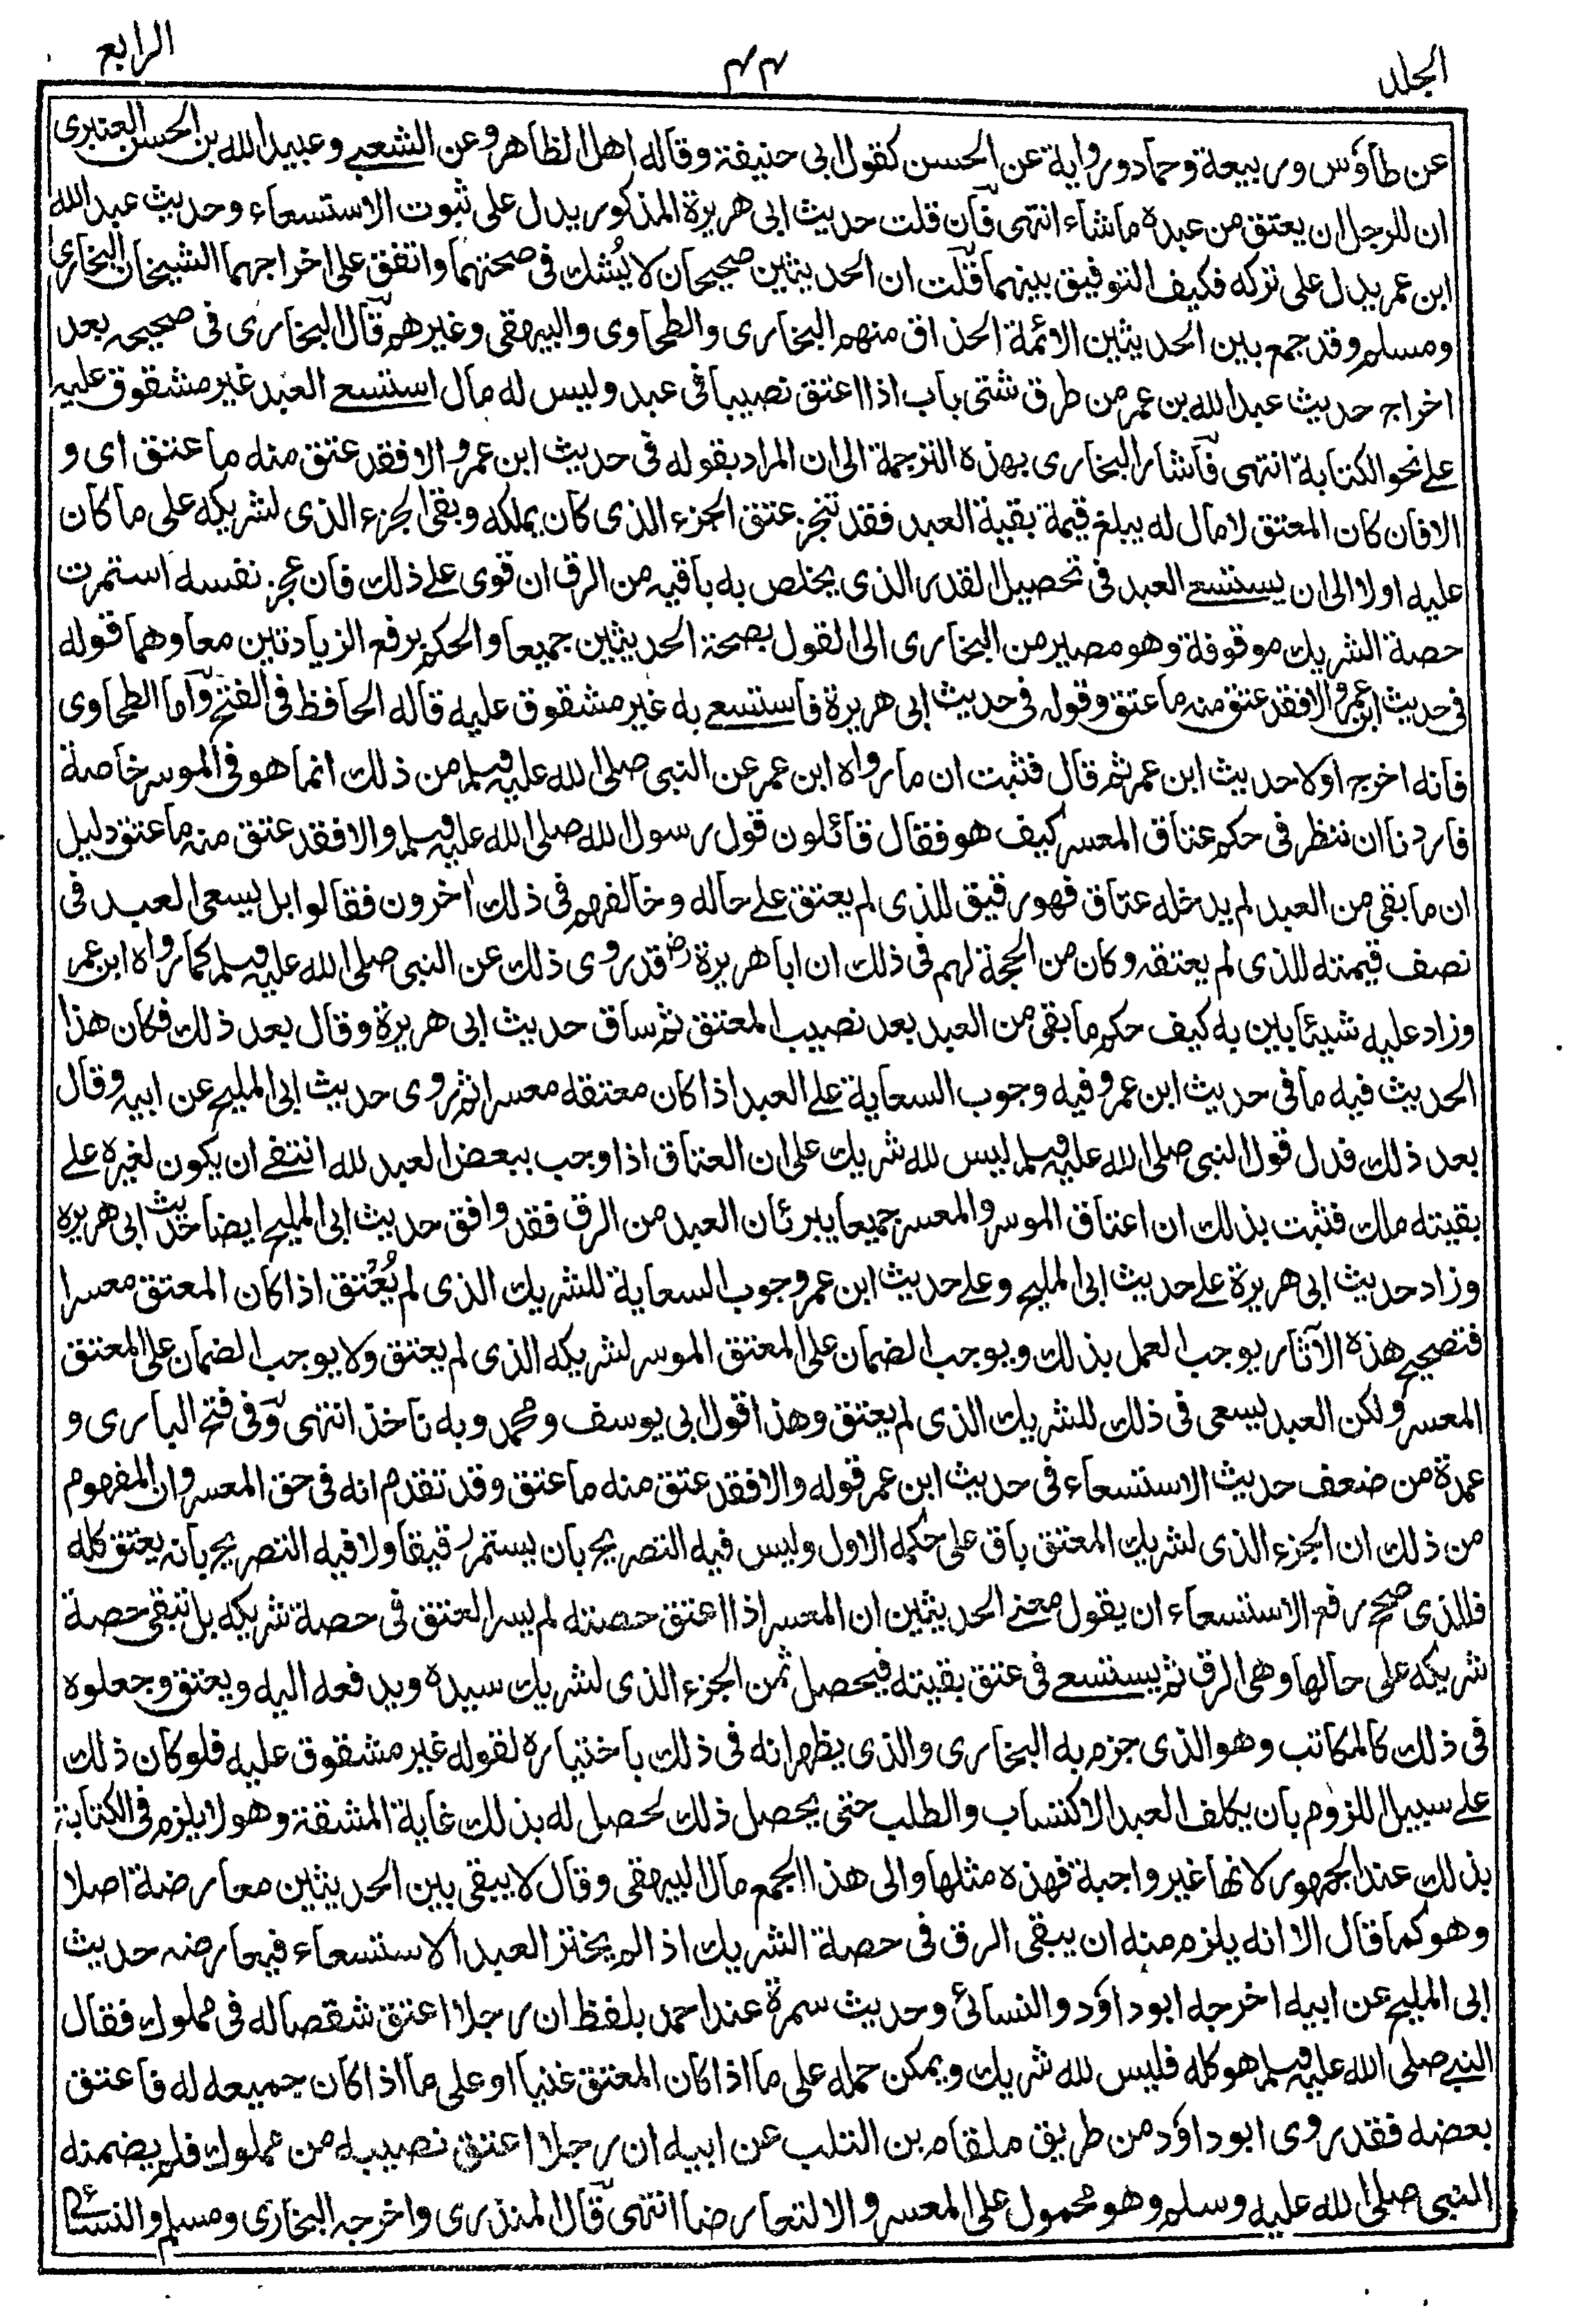 الجلد
٤٤
الرابع
عن طاؤس وربيعة وحماد ورواية عن الحسن كقول ابى حنيفة وقاله اهل الظاهر وعن الشعبي وعبيد الله بن الحسن العنبرى
ان للرجل ان يعتق من عبده ما شاء انتهى فان قلت حديث ابى هريرة المذكور يدل على ثبوت الاستسعاء وحديث عبد الله
ابن عمر يدل على تركه فكيف التوفيق بينهما قلت ان الحديثين صحيحان لا يُشك فى صحتهما واتفق على اخراجهما الشيخان البخارى
ومسلم وقد جمع بين الحديثين الائمة الحذاق منهم البخارى والطحاوى والبيهقى وغيرهم قال البخارى فى صحيحه بعد
اخراج حديث عبد الله بن عمر من طرق شتى باب اذا اعتق نصيبا فى عبد وليس له مال استسعى العبد غير مشقوق عليه
على نحو الكتابة انتهى فاشار البخارى بهذه الترجمة الى ان المراد بقوله فى حديث ابن عمر والا فقد عتق منه ما عتق اى و
الا فان كان المعتق لا مال له يبلغ قيمة بقية العبد فقد تنجز عتق الجزء الذى كان يملكه وبقى الجزء الذى لشريكه على ما كان
عليه اولا الى ان يستسعى العبد فى تحصيل القدر الذى يخلص به باقيه من الرق ان قوى على ذلك فان عجز نفسه استمرت
حصة الشريك موقوفة وهو مصير من البخارى الى القول بصحة الحديثين جميعا والحكم برفع الزيادتين معا وهما قوله
فى حديث ابن عمر والا فقد عتق منه ما عتق وقوله فى حديث ابى هريرة فاستسعى به غير مشقوق عليه قاله الحافظ فى الفتح واما الطحاوى
فانه اخرج اولا حديث ابن عمر ثم قال فثبت ان ما رواه ابن عمر عن النبى صلى الله عليه وسلم من ذلك انما هو فى الموسر خاصة
فاردنا ان ننظر فى حكم عتاق المعسر كيف هو فقال قائلون قول رسول الله صلى الله عليه وسلم والا فقد عتق منه ما عتق دليل
ان ما بقى من العبد لم يدخله عتاق فهو رقيق للذى لم يعتق على حاله وخالفهم فى ذلك اٰخرون فقالوا بل يسعى العبد فى
نصف قيمته للذى لم يعتقه وكان من الحجة لهم فى ذلك ان ابا هريرة رض قد روى ذلك عن النبى صلى الله عليه وسلم كما رواه ابن عمر
وزاد عليه شيئا بين به كيف حكم ما بقى من العبد بعد نصيب المعتق ثم ساق حديث ابى هريرة وقال بعد ذلك فكان هذا
الحديث فيه ما فى حديث ابن عمر وفيه وجوب السعاية على العبد اذا كان معتقه معسرا ثم روى حديث ابى المليح عن ابيه وقال
بعد ذلك فدل قول النبى صلى الله عليه وسلم ليس لله شريك على ان العتاق اذا وجب ببعض العبد لله انتفى ان يكون لغيره على
بقيته ملك فثبت بذلك ان اعتاق الموسر والمعسر جميعا يبرئان العبد من الرق فقد وافق حديث ابى المليح ايضا حديث ابى هريرة
وزاد حديث ابى هريرة على حديث ابى المليح وعلى حديث ابن عمر وجوب السعاية للشريك الذى لم يُعْتِق اذا كان المعتق معسرا
فتصحيح هذه الآثار يوجب العمل بذلك ويوجب الضمان على المعتق الموسر لشريكه الذى لم يعتق ولا يوجب الضمان على المعتق
المعسر ولكن العبد يسعى فى ذلك للشريك الذى لم يعتق وهذا قول ابى يوسف ومحمد وبه ناخذ انتهى وفى فتح البارى و
عمدة من ضعف حديث الاستسعاء فى حديث ابن عمر قوله والا فقد عتق منه ما عتق وقد تقدم انه فى حق المعسر وان المفهوم
من ذلك ان الجزء الذى لشريك المعتق باق على حكمه الاول وليس فيه التصريح بان يستمر رقيقا ولا فيه التصريح بانه يعتق كله
فللذى صحح رفع الاستسعاء ان يقول معنى الحديثين ان المعسر اذا اعتق حصته لم يسر العتق فى حصة شريكه بل تبقى حصة
شريكه على حالها وهى الرق ثم يستسعى فى عتق بقيته فيحصل ثمن الجزء الذى لشريك سيده ويدفعه اليه ويعتق وجعلوه
فى ذلك كالمكاتب وهو الذى جزم به البخارى والذى يظهر انه فى ذلك باختياره لقوله غير مشقوق عليه فلو كان ذلك
على سبيل اللزوم بان يكلف العبد الاكتساب والطلب حتى يحصل ذلك لحصل له بذلك غاية المشقة وهو لا يلزم فى الكتابة
بذلك عند الجمهور لانها غير واجبة فهذه مثلها والى هذا الجمع مال البيهقى وقال لا يبقى بين الحديثين معارضة اصلا
وهو كما قال الا انه يلزم منه ان يبقى الرق فى حصة الشريك اذا لم يختر العبد الاستسعاء فيعارضه حديث
ابى المليح عن ابيه اخرجه ابو داؤد والنسائى وحديث سمرة عند احمد بلفظ ان رجلا اعتق شقصا له فى مملوك فقال
النبي صلى الله عليه وسلم هو كله فليس لله شريك ويمكن حمله على ما اذا كان المعتق غنيا او على ما اذا كان جميعه له فاعتق
بعضه فقد روى ابو داؤد من طريق ملقام بن التلب عن ابيه ان رجلا اعتق نصيبه من مملوك فلم يضمنه
النبى صلى الله عليه وسلم وهو محمول على المعسر والا لتعارضا انتهى قال المنذرى واخرجه البخارى ومسلم والنسائى